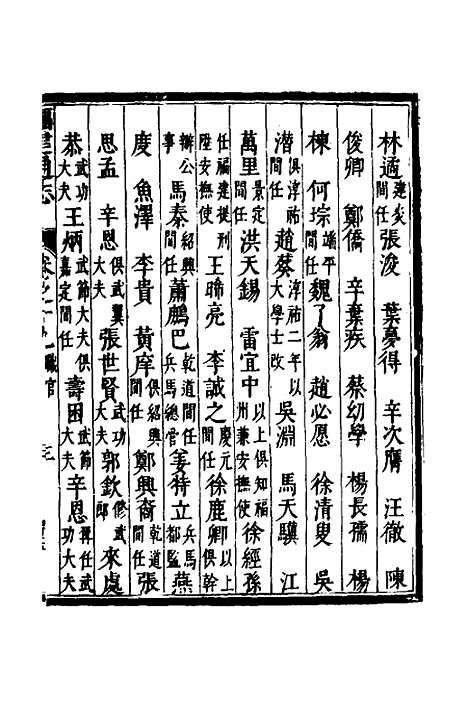 林遹建炎間任張浚　葉夢得　辛次膺　汪徹　陳
俊卿　鄭僑　辛棄疾　蔡幼學　楊長孺　楊
棟　何琮端平間任魏了翁　趙必愿　徐清叟　吳
潛俱淳祐間任趙葵淳祐二年以大學士改吳淵　馬天驥　江
萬里景定間任洪天錫　雷宜中以上俱知福州兼安撫使徐經孫
任福建提刑陞安撫使王晞亮　李誠之慶元間任徐鹿卿以上俱幹
辦公事　馬泰紹興間任蕭鵬巴乾道間任兵馬總管姜特立兵馬都監燕
度　魚澤　李貴　黃庠俱紹興間任鄭興裔乾道間任張
思孟　辛恩俱武翼大夫張世賢武功大夫郭欽修武郎來處
恭武功大夫王炳武節大夫俱嘉定間任壽困武節大夫辛恩再任武功大夫
福建通志　卷之二十　職官　三